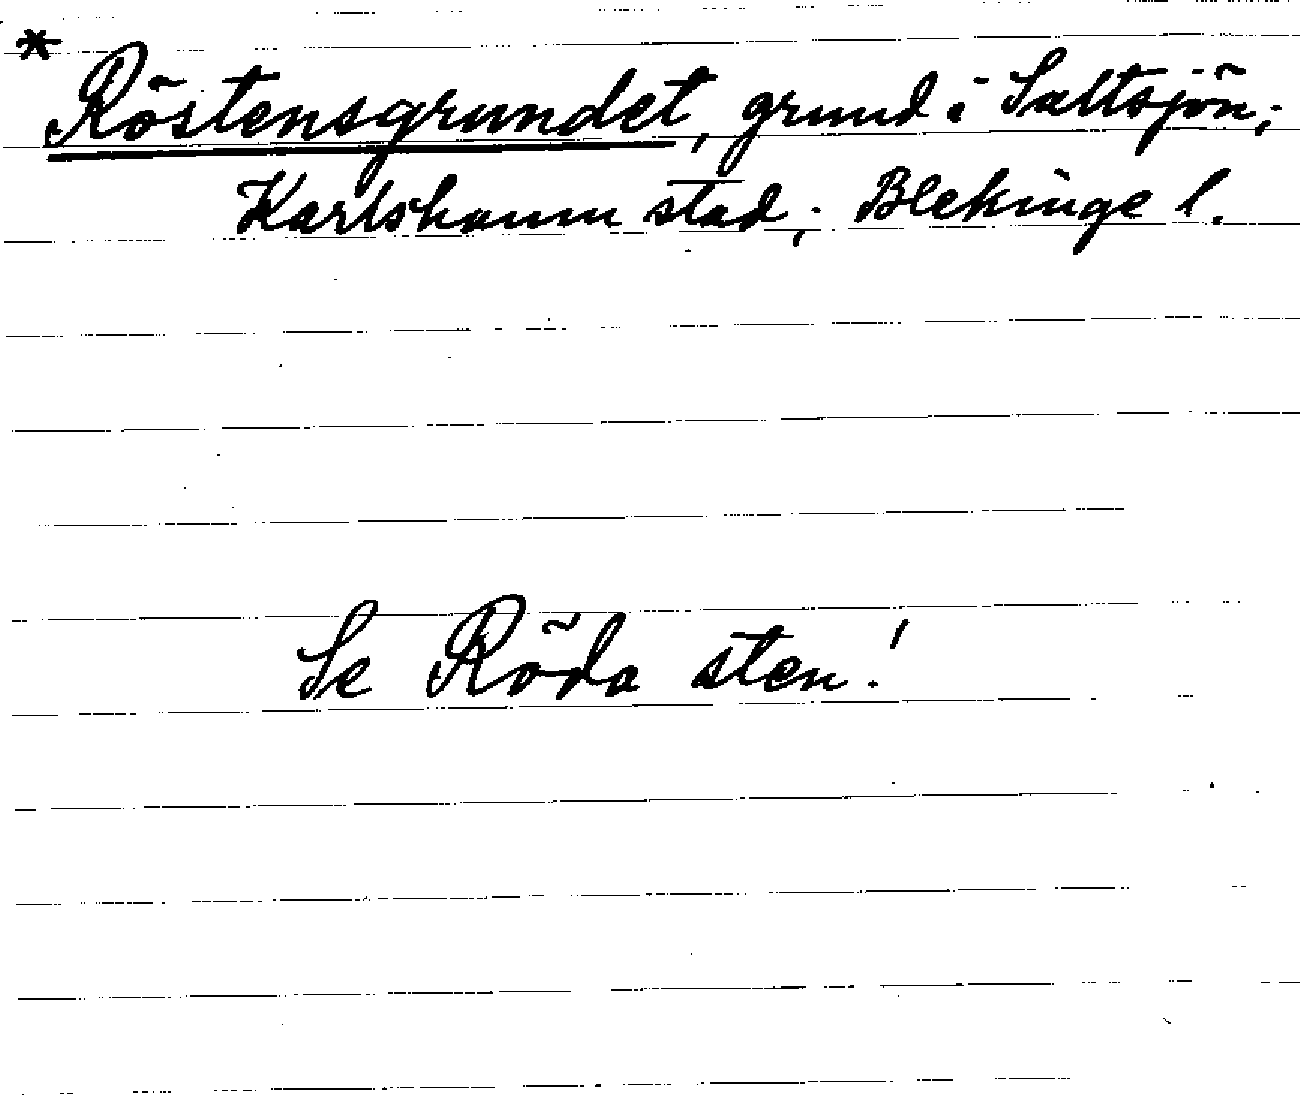 * Röstensgrundet, grund i Saltsjön;
Karlshamn stad; Blekinge l.
Se Röda sten!